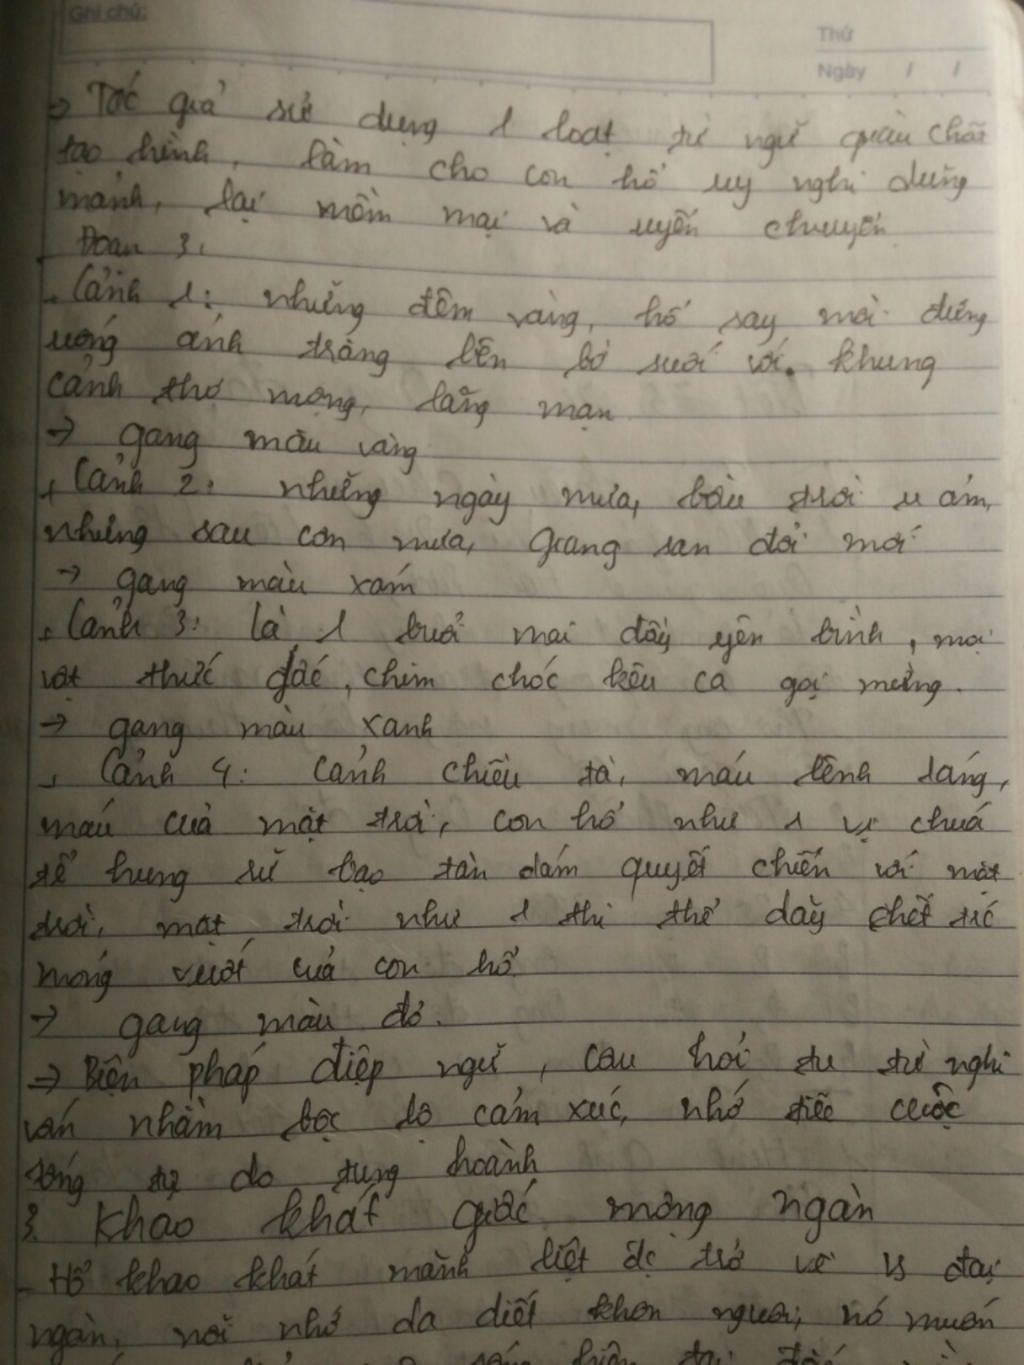 Ghi chú:
Thứ
Ngày / /
→ Tác giả sử dụng 1 loạt từ ngữ giàu chất
tạo hình, làm cho con hổ uy nghi dũng
mãnh, lại mềm mại và uyển chuyển
- Đoạn 3:
+ Cảnh 1: những đêm vàng, hổ say mồi đứng
uống ánh trăng bên bờ suối với khung
cảnh thơ mộng, lãng mạn
→ gang màu vàng
+ Cảnh 2: những ngày mưa, bầu trời u ám,
nhưng sau cơn mưa, giang san đổi mới
→ gang màu xám
+ Cảnh 3: là 1 buổi mai đầy yên bình, mọi
vật thức giấc, chim chóc kêu ca gọi mừng.
→ gang màu xanh
+ Cảnh 4: Cảnh chiều tà, máu lênh láng,
máu của mặt trời, con hổ như 1 vị chúa
tể hung dữ bạo tàn dám quyết chiến với mặt
trời, mặt trời như 1 thi thể dãy chết trước
móng vuốt của con hổ
→ gang màu đỏ.
⇒ Biện pháp điệp ngữ, câu hỏi tu từ nghi
vấn nhằm bộc lộ cảm xúc, nhớ tiếc cuộc
sống tự do tung hoành
3. Khao khát giấc mộng ngàn
- Hổ khao khát mãnh liệt đc trở về vs đại
ngàn, nỗi nhớ da diết khôn nguôi; nó muốn